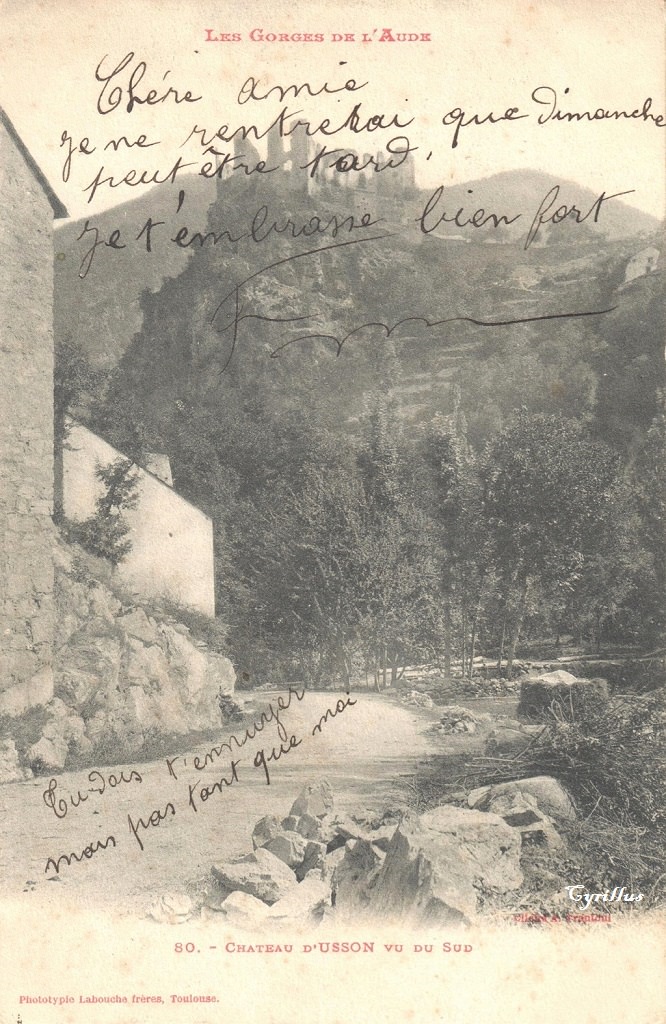 LES GORGES DE L'AUDE
Chére amie
je ne rentrerai que dimanche
peut être tard.
Je t'embrasse bien fort
Tu dois t'ennuyer
mais pas tant que moi
Cyrillus
Cliché A. Trantoul
80. - CHATEAU D'USSON VU DU SUD
Phototypie Labouche frères, Toulouse.